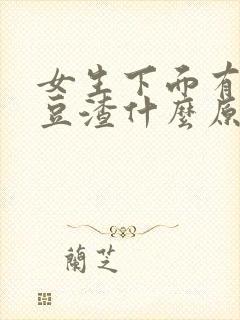 女生下而有
豆渣什麼原
蘭芝